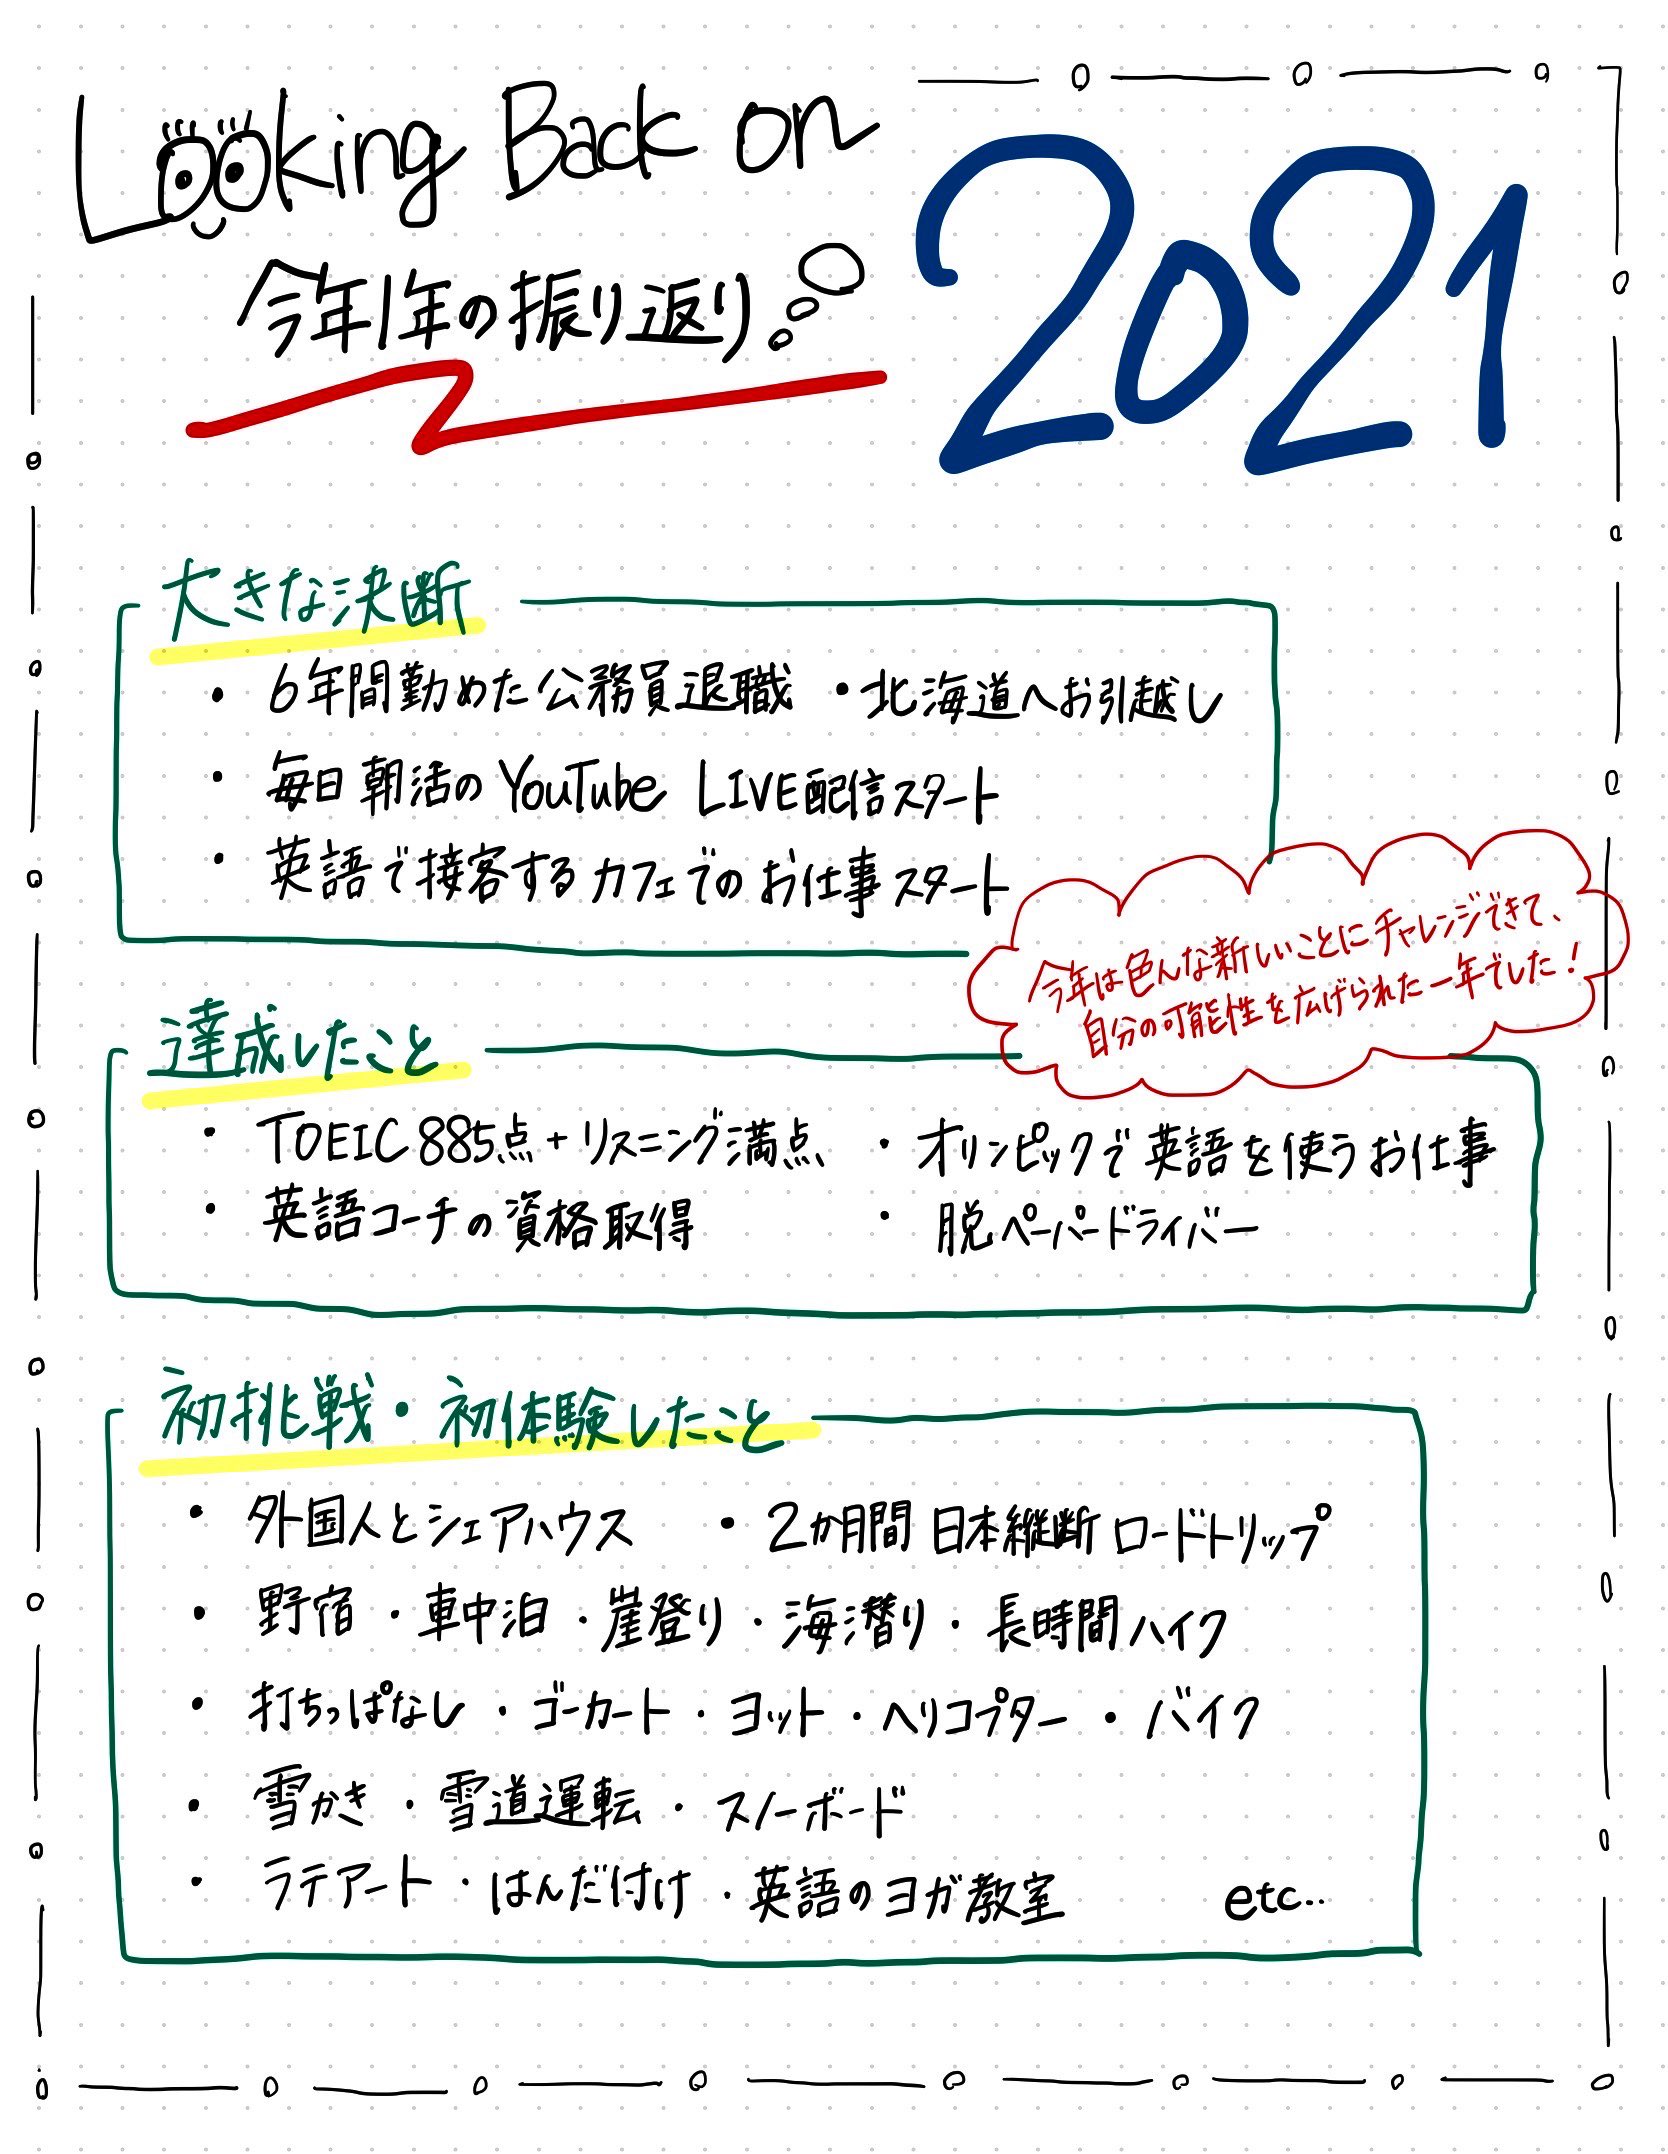 Looking Back on
2021
今年1年の振り返り
大きな決断
・6年間勤めた公務員退職 ・北海道へお引越し
・毎日朝活のYouTube LIVE配信スタート
・英語で接客するカフェでのお仕事スタート
今年は色んな新しいことにチャレンジできて、
自分の可能性を広げられた一年でした!
達成したこと
・TOEIC 885点+リスニング満点 ・オリンピックで英語を使うお仕事
・英語コーチの資格取得 ・脱ペーパードライバー
初挑戦・初体験したこと
・外国人とシェアハウス ・2か月間日本縦断ロードトリップ
・野宿・車中泊・崖登り・海潜り・長時間ハイク
・打ちっぱなし・ゴーカート・ヨット・ヘリコプター・バイク
・雪かき・雪道運転・スノーボード
・ラテアート・はんだ付け・英語のヨガ教室 etc..